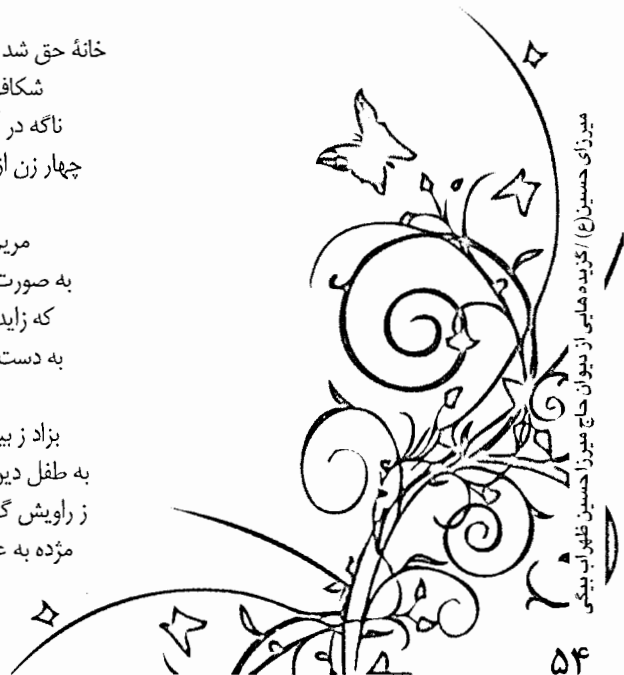 خانهٔ حق شد
ناگه در
چهار زن از
به صورت
که زاید
به دست
به طفل
ز راویش
مژده به
میرزای حسین(ع) / گزیده‌هایی از دیوان حاج میرزا حسین ظهراب بیگی
۵۴